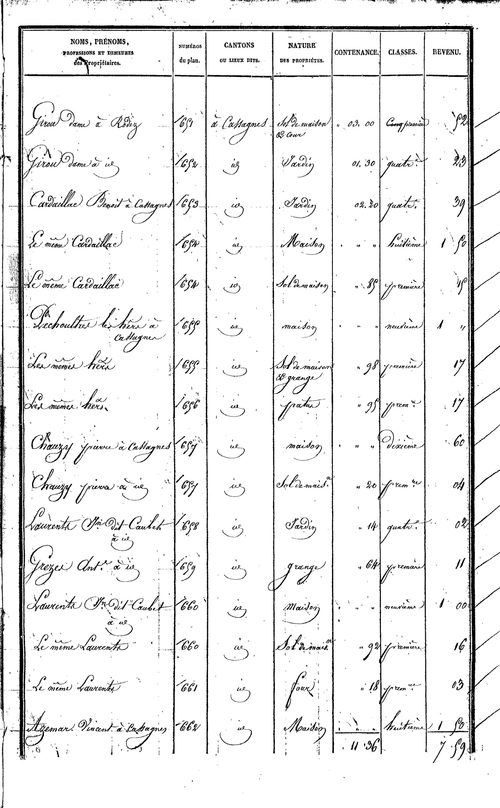 NOMS, PRÉNOMS, PROFESSIONS ET DEMEURES des Propriétaires. NUMÉROS du plan. CANTONS OU LIEUX DITS. NATURE DES PROPRIÉTÉS. CONTENANCE. CLASSES. REVENU.
Girou dame à Rodez 1651 à Cassagnes Sol de maison & cour " 03.00 première " 52
Girou dame à id 1652 id Jardin 01.30 quatr.e 23
Cardaillac Benoit à Cassagnes 1653 id Jardin 02.20 quatr.e 39
Le même Cardaillac 1654 id Maison " " huitième 1 50
Le même Cardaillac 1654 id Sol de maison " 85 première 15
les hérs à Cassagnes 1655 id maison " " neuvième 1 "
Les mêmes hérs 1655 id Sol de maison & grange " 98 première 17
Les mêmes hérs 1656 id patus " 95 prem.re 17
Chauzy pierre à Cassagnes 1657 id maison " " dixième 60
Chauzy pierre à id 1657 id Sol de mais.on " 20 prem.re 04
Laurents dit Caubet à id 1658 id Jardin " 14 quatr.e 02
Grezes Ant.e à id 1659 id grange " 64 première 11
Laurents dit Caubet à id 1660 id Maison " " neuvième 1 00
Le même Laurents 1660 id Sol de mais.on " 92 première 16
Le même Laurents 1661 id four " 18 prem.re 03
Azemar Vincent à Cassagnes 1662 id Maison " " huitième 1 50
11.36 7 59